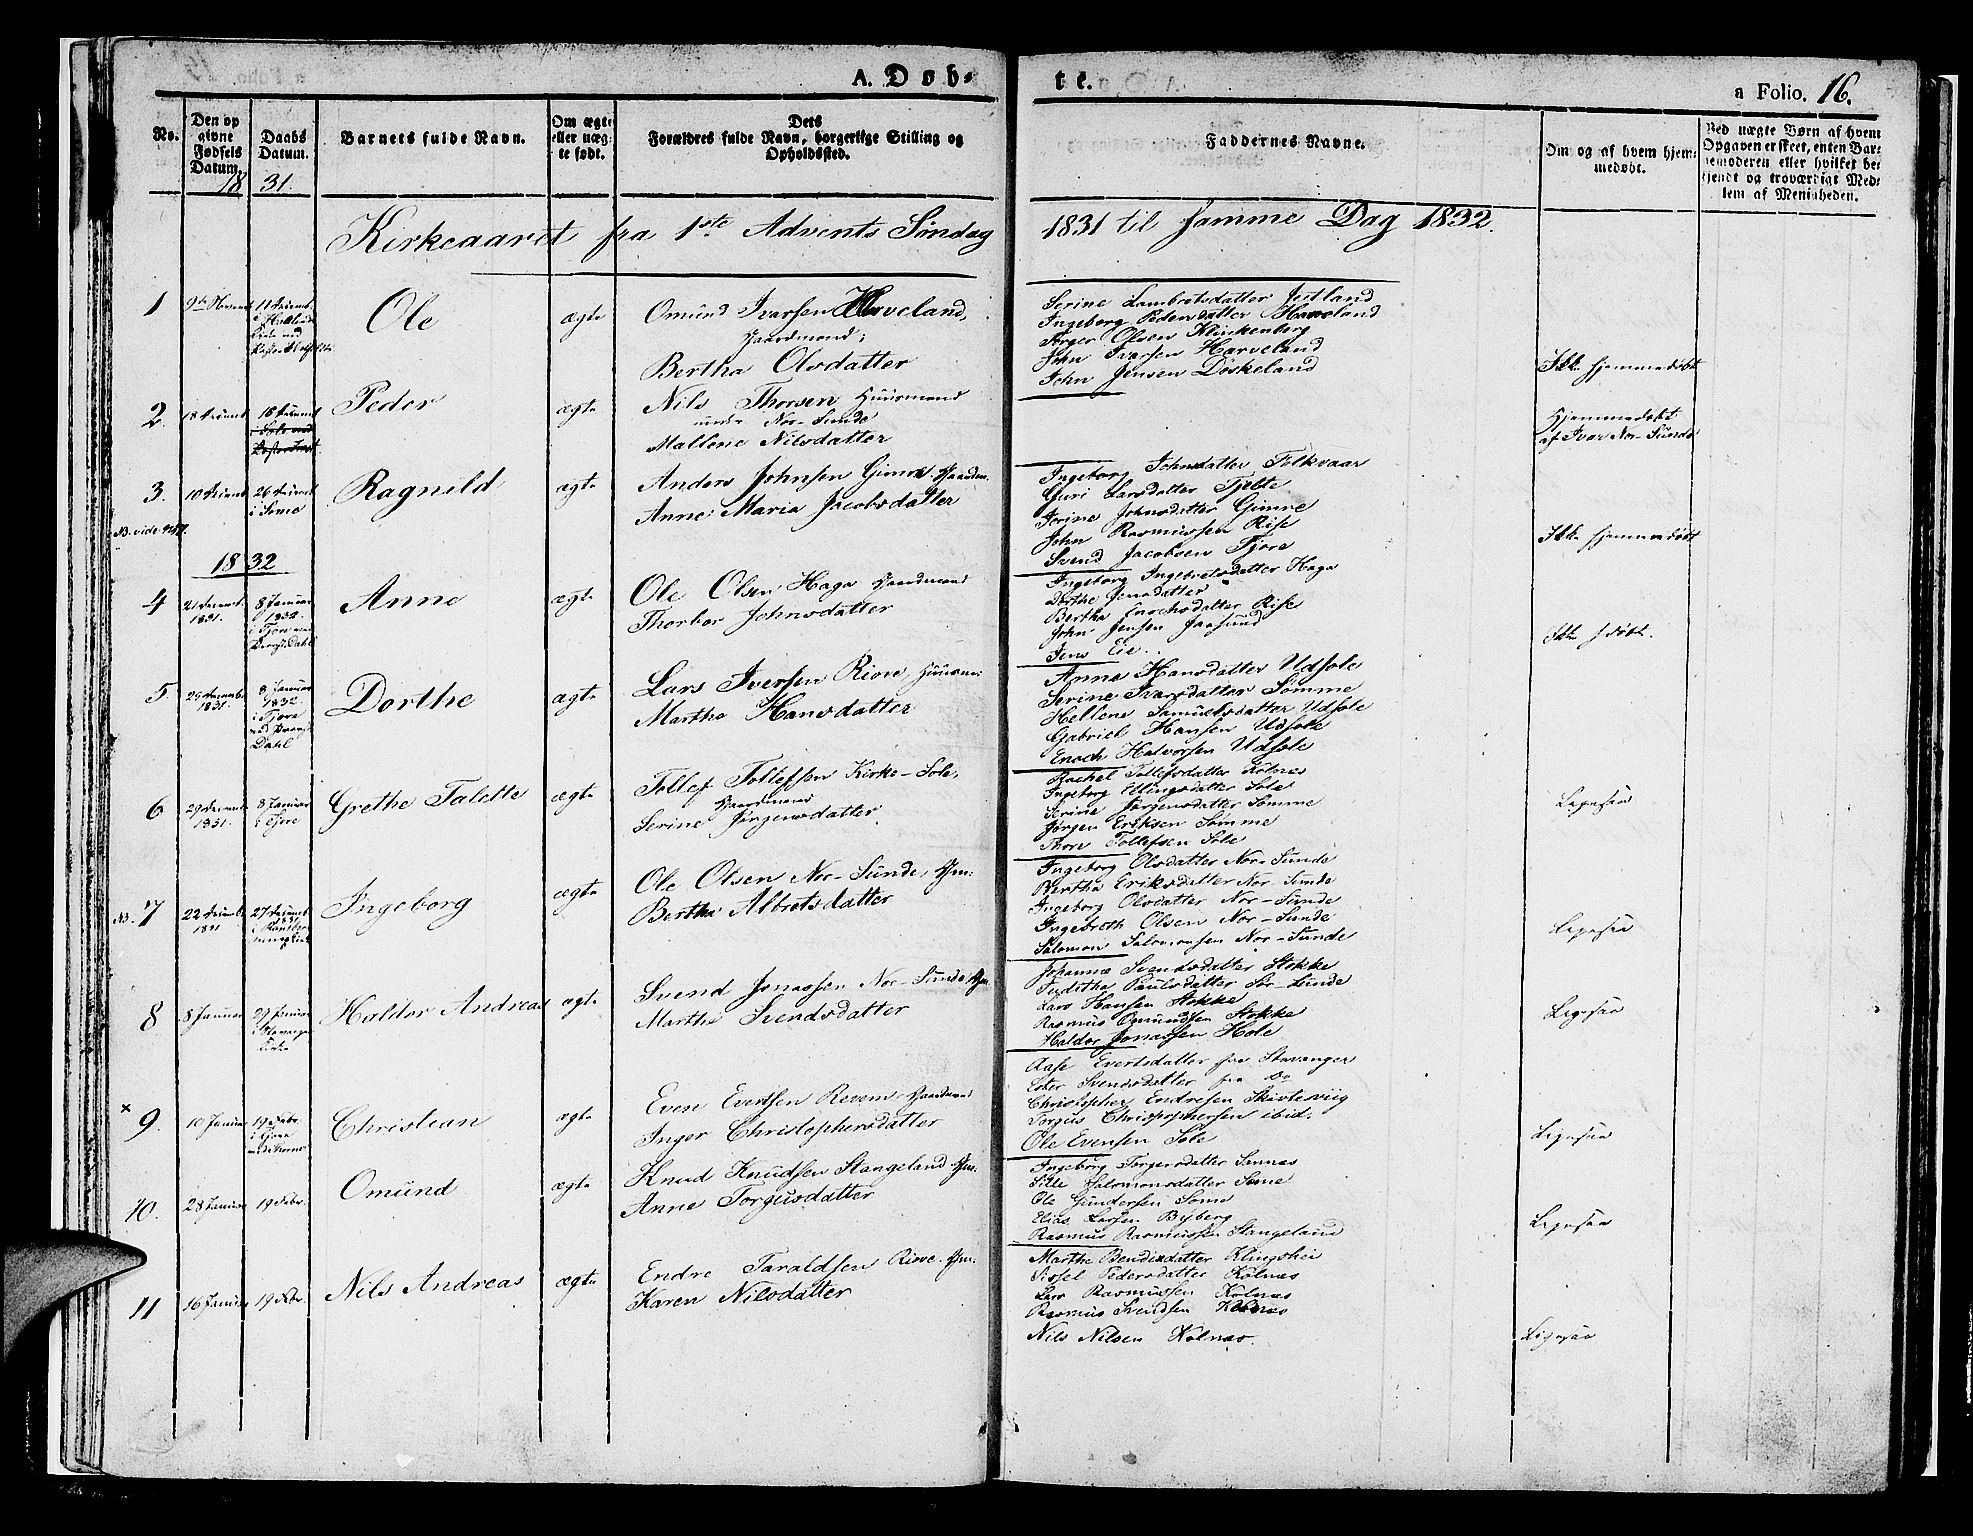 A. Døb-
te.
a Folio. 16.
No.
Den op
givne
Fødsels
Datum.
Daabs
Datum.
Barnets fulde Navn.
Om ægte
eller uæg-
te født.
Dets
Forældres fulde Navn, borgerlige Stilling og
Opholdssted.
Faddernes Navne.
Om og af hvem hjem-
medøbt.
Ved uægte Børn af hvem
Opgaven er skeet, enten Bar-
nemoderen eller hvilket be-
kjendt og troværdigt Med-
lem af Menigheden.
18 31.
Kirkeaaret fra 1ste Advents Søndag 1831 til samme Dag 1832.
1
Ole
ægte
Omund Ivarsen Haveland,
Gaardmand;
Bertha Olsdatter
Serine Lambretsdatter Jeitland
Ingeborg Pedersdatter Haveland
Torger Olsen Klinkenberg
John Ivarsen Harveland
John Jensen Døskeland
Ikke hjemmedøbt
2.
Peder
ægte
Nils Thorsen Huusmand
under Nor-Sunde
Mallene Nilsdatter
Hjemmedøbt
af Ivar Nor-Sunde
3.
Ragnild
ægte
Anders Johnsen Gimre Gaardm.
Anne Maria Jacobsdatter
Ingeborg Johnsdatter Folkvaar
Guri Larsdatter Tjelte
Serine Johnsdatter Gimre
John Rasmussen Rise
Svend Jacobsen Tjore
Ikke hjemmedøbt
1832
4
21 Decemb.
1831.
8 Januar
1832.
Anne
ægte
Ole Olsen Haga Gaardmand
Thorbor Johnsdatter
Ingeborg Ingebretsdatter Haga
Dorthe Jensdatter
Bertha Enochsdatter Rise
John Jensen Jaasund
Jens Eie
5
1831.
8 Januar
1832.
i Tjore
Dahl
Dorthe
ægte
Lars Iversen Riove Huusm:
Marthe Hansdatter
Anna Hansdatter Udsole
Serine Ivarsdatter Sømme
Hellene Samuelsdatter Udsole
Gabriel Hansen Udsole
Enoch Halvorsen Udsole
6
1831.
8 Januar
i Tjore
Grethe Talette
ægte
Tollef Tollefsen Kirke-Sole,
Gaardmand
Serine Jørgensdatter.
Rachel Tollefsdatter Kolnes
Ingeborg Ellingsdatter Sole
Serine Jørgensdatter Sømme
Jørgen Eriksen Sømme
Thore Tollefsen Sole
Ligesaa
7
1831
Ingeborg
ægte
Ole Olsen Nor-Sunde,
Bertha Albretsdatter
Ingeborg Olsdatter Nor-Sunde
Bertha Eriksdatter Nor-Sunde
Ingeborg Olsdatter Nor-Sunde
Ingebreth Olsen Nor-Sunde
Salomon Salomonsen Nor-Sunde
Ligesaa
8
8 Januar
Haldor Andreas
ægte
Svend Jonassen Nor-Sunde
Marthe Svendsdatter
Johanne Svendsdatter Stokke
Judithe Paulsdatter Sør-Sunde
Lars Hansen Stokke
Rasmus Omundsen Stokke
Haldor Jonassen Hole
Ligesaa
9.
10 Januar
19 Febr.
i Tjore
Christian
ægte
Even Evertsen Revem Gaardmand
Inger Christophersdatter
Aase Evertsdatter fra Stavanger
Ester Svendsdatter fra Do
Christopher Endresen Skiveviig
Torgus Christophersen ibid.
Ole Evensen Sole
Ligesaa
10.
28 Januar
19 Febr.
Omund
ægte
Knud Knudsen Stangeland
Anne Torgusdatter
Ingeborg Torgersdatter Sannes
Sille Salomonsdatter Sømme
Ole Gundersen Sømme
Elias Larsen Byberg
Rasmus Rasmussen Stangeland
Ligesaa
11
16 Januar
19 Febr.
Nils Andreas
ægte
Endre Taraldsen Riove
Karen Nilsdatter
Marthe Bendixdatter Klingshei
Sissel Pedersdatter Kolnes
Lars Rasmussen Kolnes
Rasmus Svendsen Kolnes
Nils Nilsen Kolnes.
Ligesaa